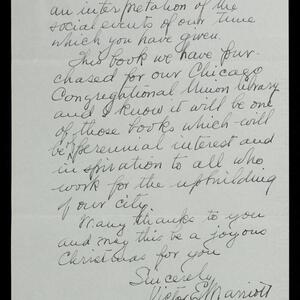 an interpretation of the
social events of our time
which you have given.
This book we have pur-
chased for our Chicago
Congregational Union library
and I know it will be one
of those books which will
be of perennial interest and
inspiration to all who
work for the upbuilding
of our city.
Many thanks to you
and may this be a joyous
Christmas for you
Sincerely
Victor E. Marriott